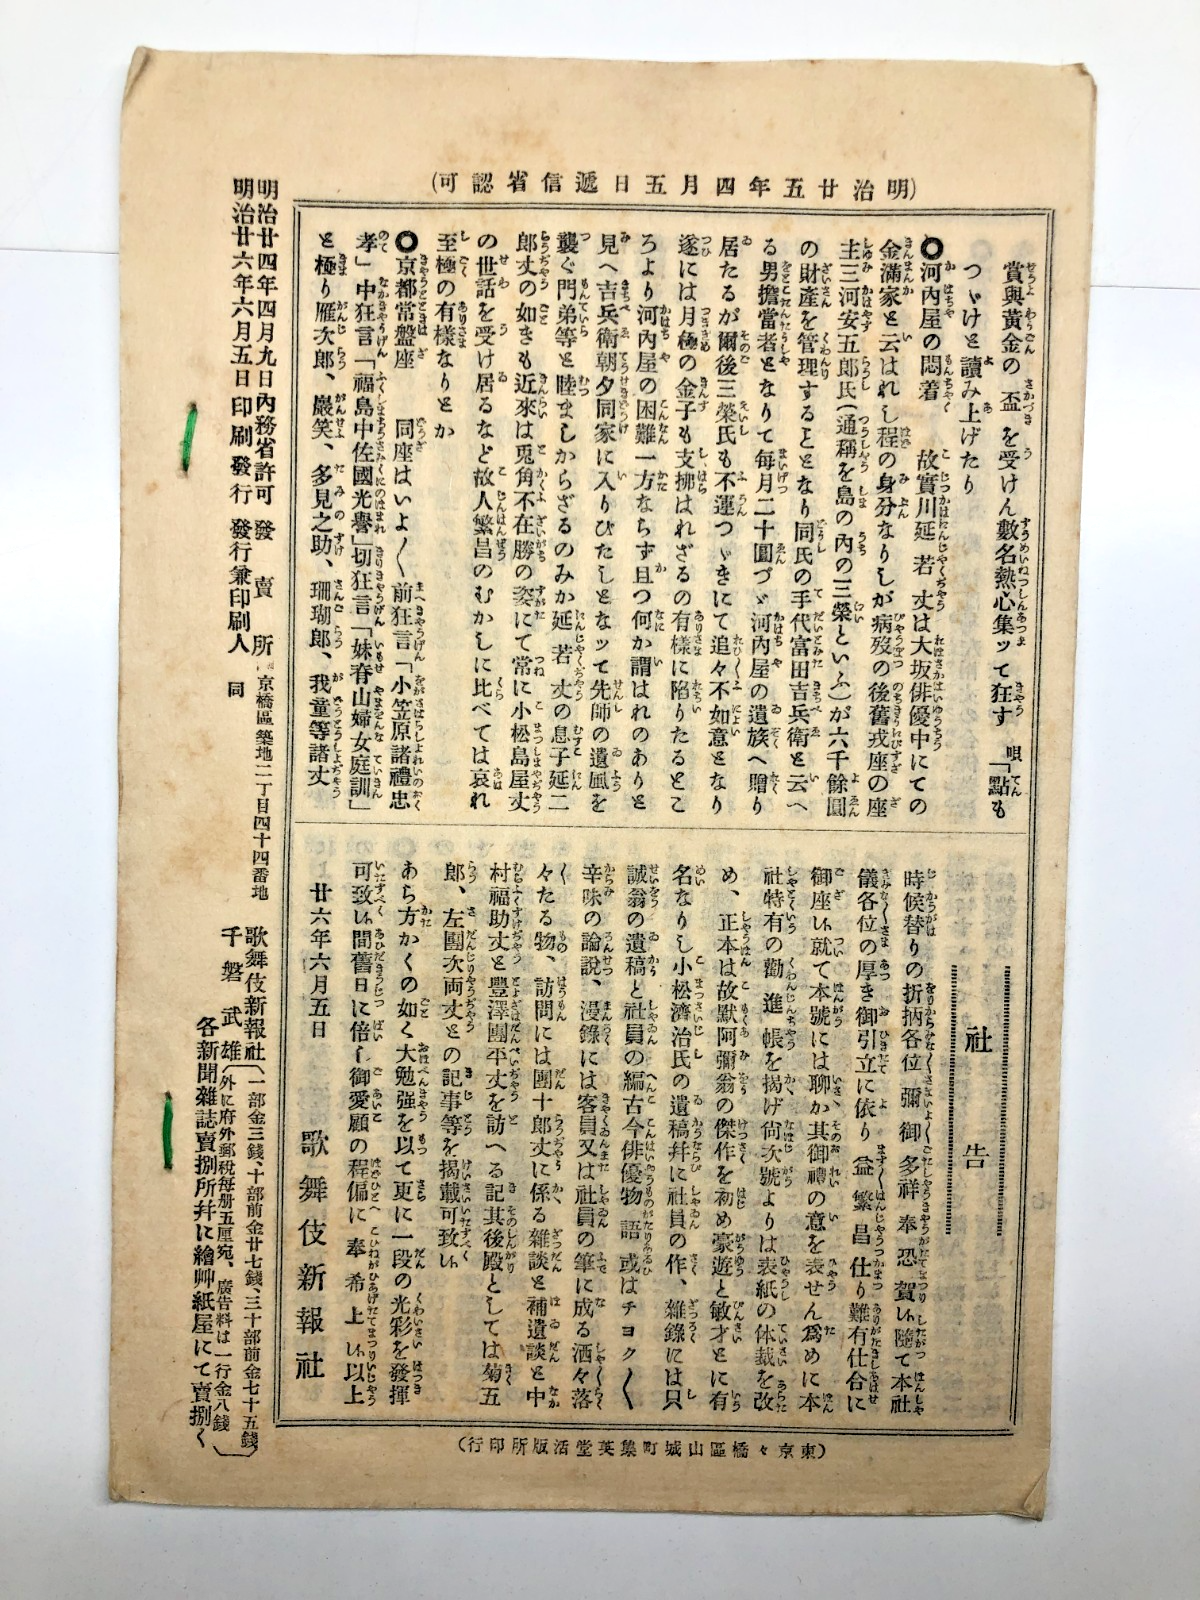 (明治廿五年四月五日遞信省認可)
賞與黃金の盃を受けん數名熱心集ッて狂す 唄「點も
つゞけと讀み上げたり
◯河內屋の悶着 故實川延若丈は大坂俳優中にての
金滿家と云はれし程の身分なりしが病歿の後舊戎座の座
主三河安五郎氏(通稱を島の內の三榮といふ)が六千餘圓
の財產を管理することとなり同氏の手代富田吉兵衛と云へ
る男擔當者となりて每月二十圓づゞ河內屋の遺族へ贈り
居たるが爾後三榮氏も不運つゞきにて追々不如意となり
遂には月極の金子も支拂はれざるの有樣に陷りたるとこ
ろより河內屋の困難一方ならず且つ何か謂はれのありと
見へ吉兵衛朝夕同家に入りびたしとなッて先師の遺風を
襲ぐ門弟等と睦ましからざるのみか延若丈の息子延二
郎丈の如きも近來は兎角不在勝の姿にて常に小松島屋丈
の世話を受け居るなど故人繁昌のむかしに比べては哀れ
至極の有樣なりとか
◯京都常盤座 同座はいよ〱前狂言「小笠原諸禮忠
孝」中狂言「福島中佐國光譽」切狂言「妹脊山婦女庭訓」
と極り雁次郎、巖笑、多見之助、珊瑚郎、我童等諸丈
社告
時候替りの折柄各位彌御多祥奉恐賀候隨て本社
儀各位の厚き御引立に依り益繁昌仕り難有仕合に
御座候就て本號には聊か其御禮の意を表せん爲めに本
社特有の勸進帳を揭げ尙次號よりは表紙の体裁を改
め、正本は故默阿彌翁の傑作を初め豪遊と敏才とに有
名なりし小松濟治氏の遺稿幷に社員の作、雜錄には只
誠翁の遺稿と社員の編古今俳優物語或はチヨク〱
辛味の論說、漫錄には客員又は社員の筆に成る洒々落
々たる物、訪問には團十郎丈に係る雜談と補遺談と中
村福助丈と豐澤團平丈を訪へる記其後殿としては菊五
郎、左團次両丈との記事等を揭載可致候
あら方かくの如く大勉强を以て更に一段の光彩を發揮
可致候間舊日に倍し御愛顧の程偏に奉希上候以上
廿六年六月五日 歌舞伎新報社
明治廿四年四月九日內務省許可 發賣所 京橋區築地二丁目四十四番地 歌舞伎新報社
明治廿六年六月五日印刷發行 發行兼印刷人 同 千磐武雄
(一部金三錢、十部前金廿七錢、三十部前金七十五錢
外に府外郵稅每册五厘宛、廣告料は一行金八錢)
各新聞雜誌賣捌所幷に繪艸紙屋にて賣捌く
(東京々橋區山城町集英堂活版所印行)